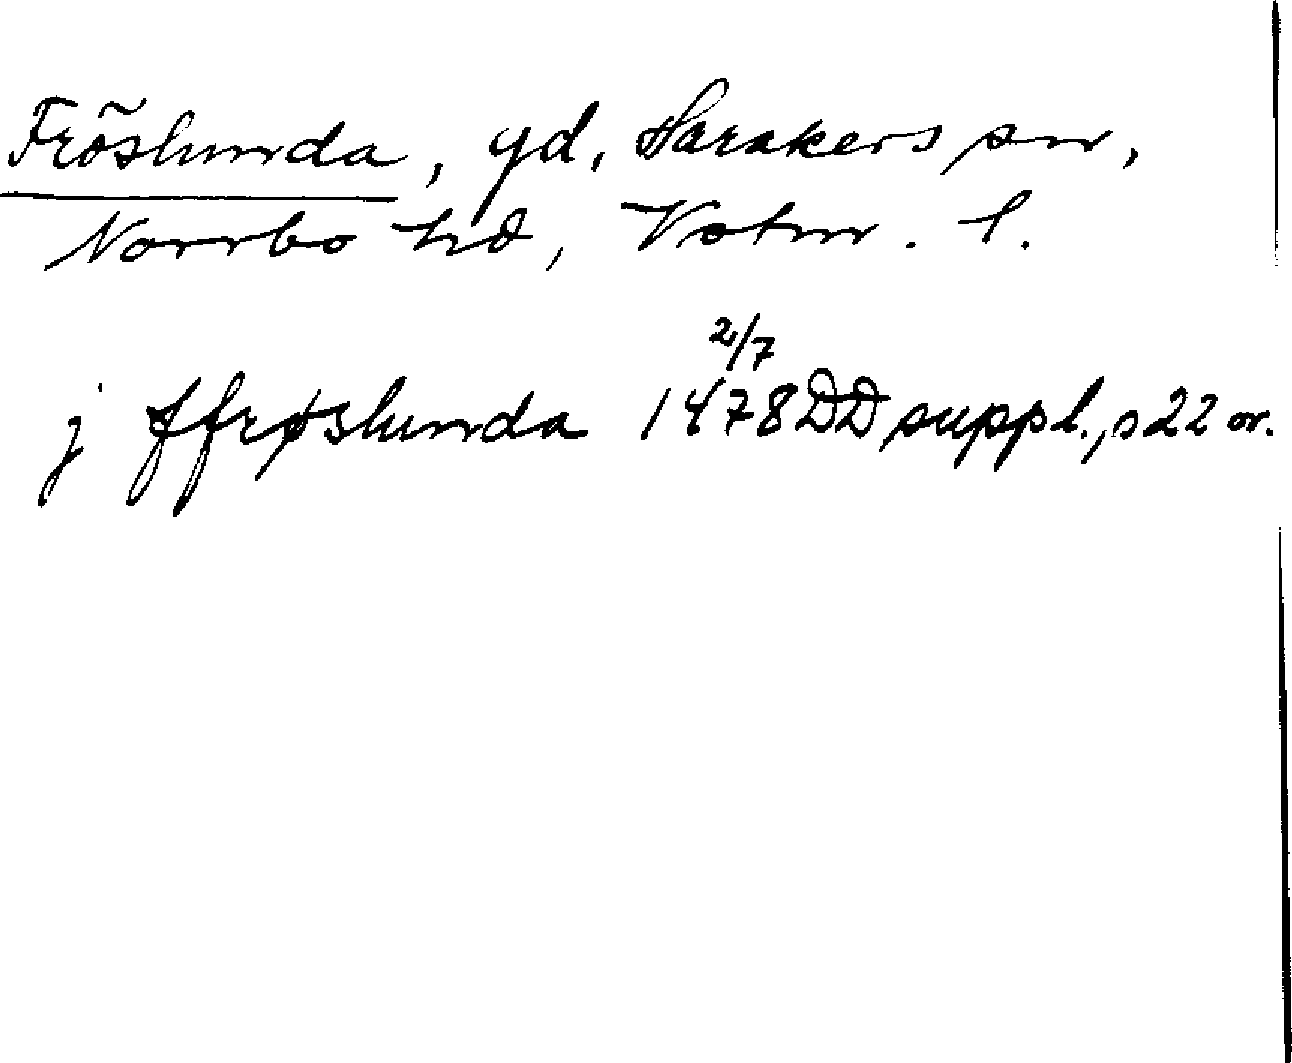 Fröslunda, gd, Harakers sn,
Norrbo hd, Vstm. l.
j ffrøslunda 2/7 1478 DD suppl., s 22 or.